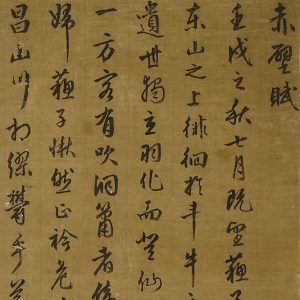 赤壁賦
壬戌之秋七月既望蘇子
東山之上徘徊於斗牛之
遺世獨立羽化而登仙
一方客有吹洞簫者倚
婦蘇子愀然正襟危
山川相繆鬱乎蒼